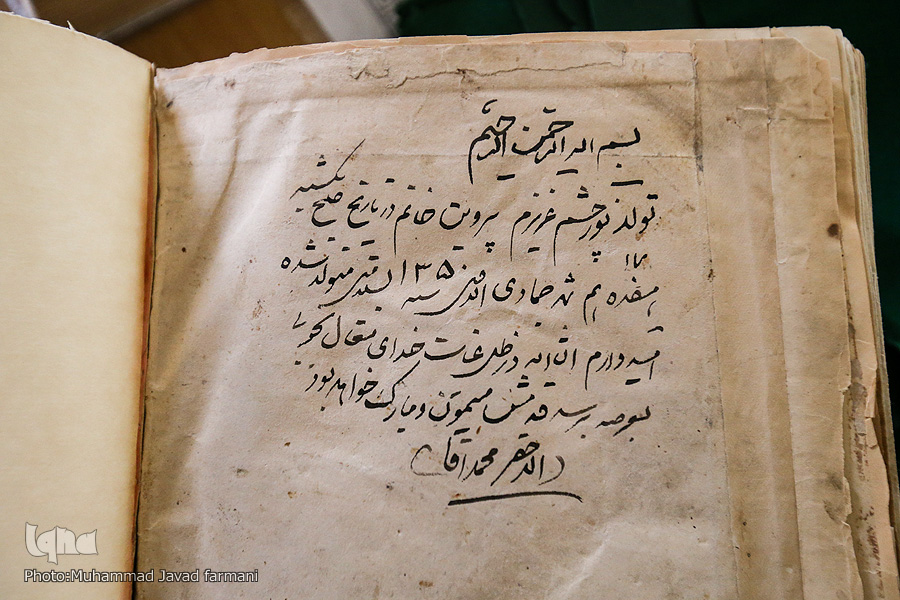 بسم الله الرحمن الرحیم
تولد نور چشم عزیزم پروین خانم در تاریخ صبح یکشنبه
هفدهم شهر جمادی الثانی سنه ۱۳۵ متولد شده
امیدوارم انشاالله در ظل خدای متعال بخوبی
برسد قدمش میمون و مبارک خواهد بود
(الاحقر محمد آقا)
Iqna
Photo:Muhammad Javad farmani